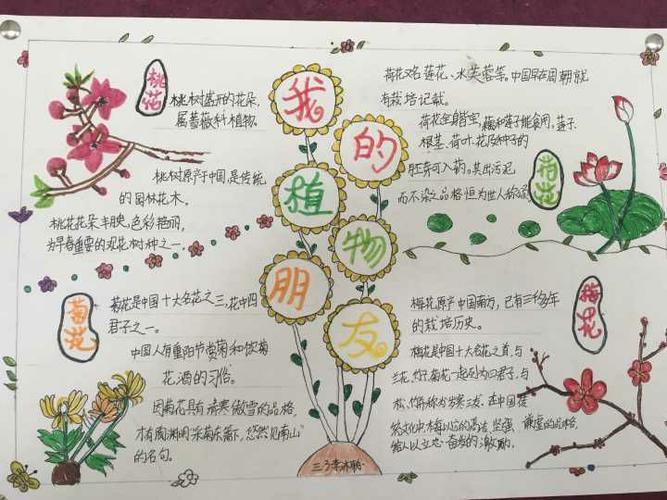 我的植物朋友
桃花
桃树盛开的花朵,
属蔷薇科植物.
桃树原产中国,是传统
的园林花木。
桃花花朵丰腴,色彩艳丽,
为早春重要的观花树种之一.
荷花
荷花又名莲花、水芙蓉等。中国早在周朝就
有栽培记载。
荷花全身皆宝,藕和莲子能食用,莲子、
根茎、荷叶、花及种子的
胚芽可入药。其出污泥
而不染之品格恒为世人称颂
菊花
菊花是中国十大名花之三,花中四
君子之一。
中国人有重阳节赏菊和饮菊
花酒的习俗。
因菊花具有清寒傲雪的品格,
才有陶渊明“采菊东篱下,悠然见南山”
的名句。
梅花
梅花原产中国南方,已有三千多年
的栽培历史。
梅花是中国十大名花之首,与
兰花、竹子、菊花一起列为四君子,与
松、竹并称为岁寒三友.在中国传
统文化中,梅以它的高洁、坚强、谦虚的品格,
给人以立志奋发的激励。